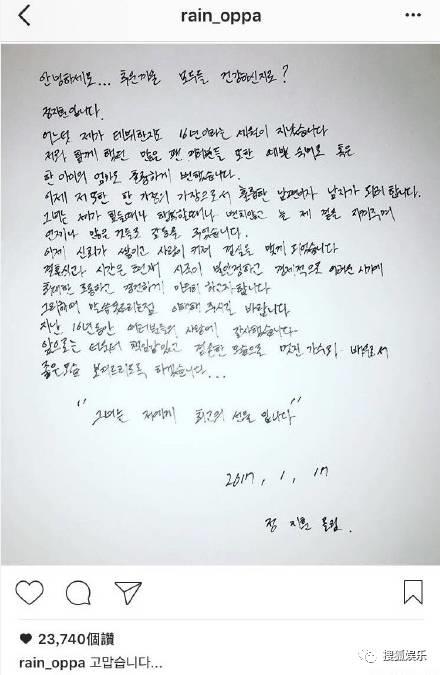 rain_oppa
안녕하세요... 추운겨울 모두들 건강하신지요?
정지훈입니다.
어느덧 제가 데뷔한지 16년이라는 세월이 지났습니다
저와 함께 했던 많은 팬 여러분들 또한 예쁜 숙녀로 혹은
한 아이의 엄마로 훌륭하게 변했습니다.
이제 저 또한 한 가정의 가장으로써 훌륭한 남편이자 남자가 되려 합니다.
그녀는 제가 힘들때나 행복할때나 변치않고 늘 제 곁을 지켜주며
언제나 많은 것들로 감동을 주었습니다.
이제 신뢰가 쌓이고 사랑이 커져 결실을 맺게 되었습니다
결혼식과 시간은 현재 시국이 불안정하고 경제적으로 어려운 시기에
최대한 조용하고 경건하게 마무리 하고자 합니다
그리하여 말씀 못드리는점 이해해 주시길 바랍니다
지난 16년동안 여러분들의 사랑에 감사했습니다
앞으로는 더욱더 책임감있고 겸을한 모습으로 멋진 가수와 배우로서
좋은모습 보여드리도록 하겠습니다...
"그녀는 저에게 최고의 선물 입니다"
2017, 1, 17
정 지훈 올림.
23,740個讚
rain_oppa 고맙습니다...
搜狐娱乐